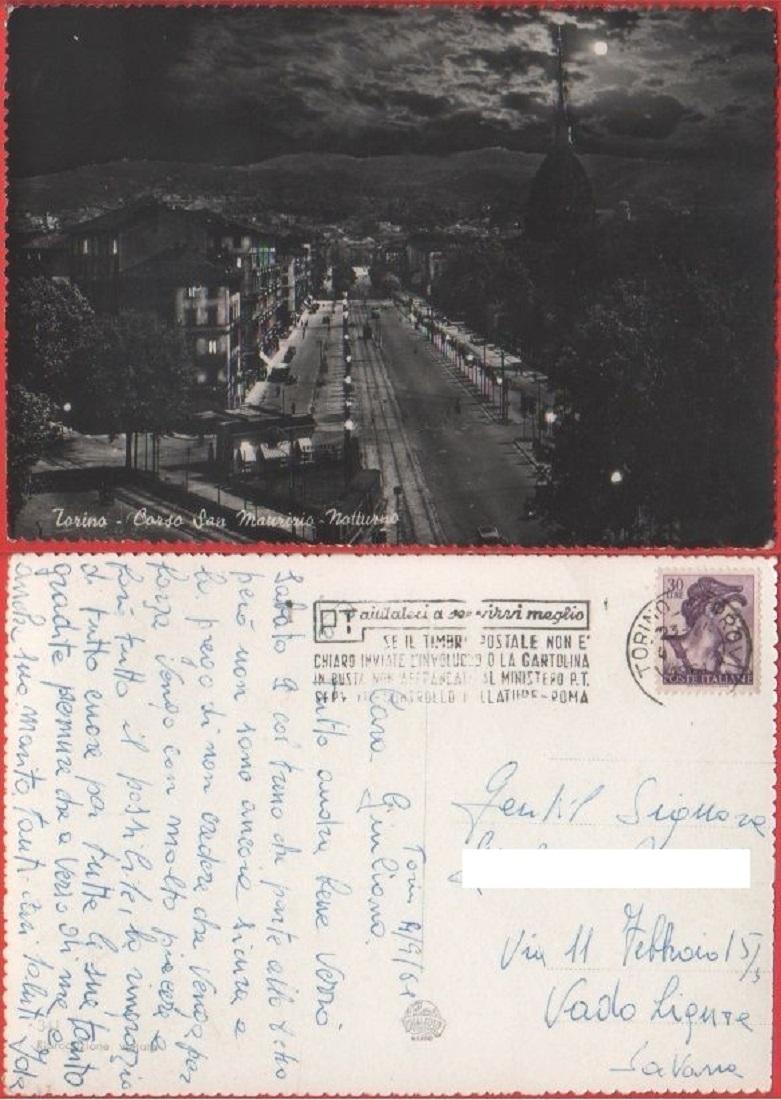 Torino - Corso San Maurizio - Notturno
PT aiutateci a servirvi meglio
SE IL TIMBR POSTALE NON E'
CHIARO INVIATE L'INVOLUCRO O LA CARTOLINA
IN BUSTA NON AFFRANCATA AL MINISTERO P.T.
CONTROLLO BOLLATURE - ROMA
TORINO FERROVIA
30
LIRE
POSTE ITALIANE
Torin 4/9/61
Cara Giuliana.
Se tutto andra bene verrò
sabato 9 col treno che parte alle 8 e ho
però non sono ancora sicura e
la prego di non credere che venga per
forza. Vengo con molto piacere e
farò tutto il possibile, la ringrazio
di tutto cuore per tutte le sue tanto
gradite premure che a verso di me e
anche suo marito. Tanti cari saluti
Gentil Signora
Via 11 Febbraio 15/3
Vado Ligure
Savona
Riproduzione vietata